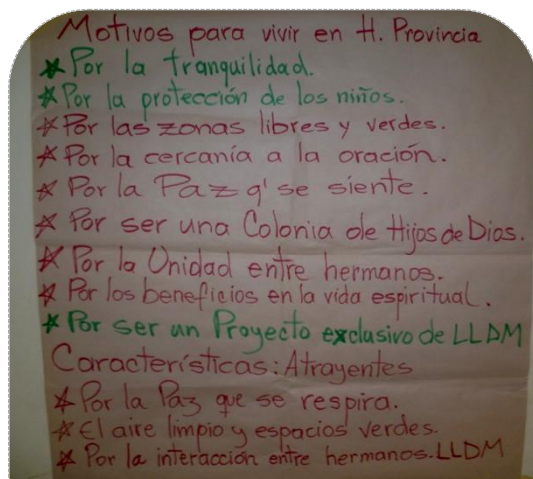 Motivos para vivir en H. Provincia
Por la tranquilidad.
Por la protección de los niños.
Por las zonas libres y verdes.
Por la cercanía a la oración.
Por la Paz q' se siente.
Por ser una Colonia de Hijos de Dios.
Por la Unidad entre hermanos.
Por los beneficios en la vida espiritual.
Por ser un Proyecto exclusivo de LLDM
Características: Atrayentes
Por la Paz que se respira.
El aire limpio y espacios verdes.
Por la interacción entre hermanos. LLDM